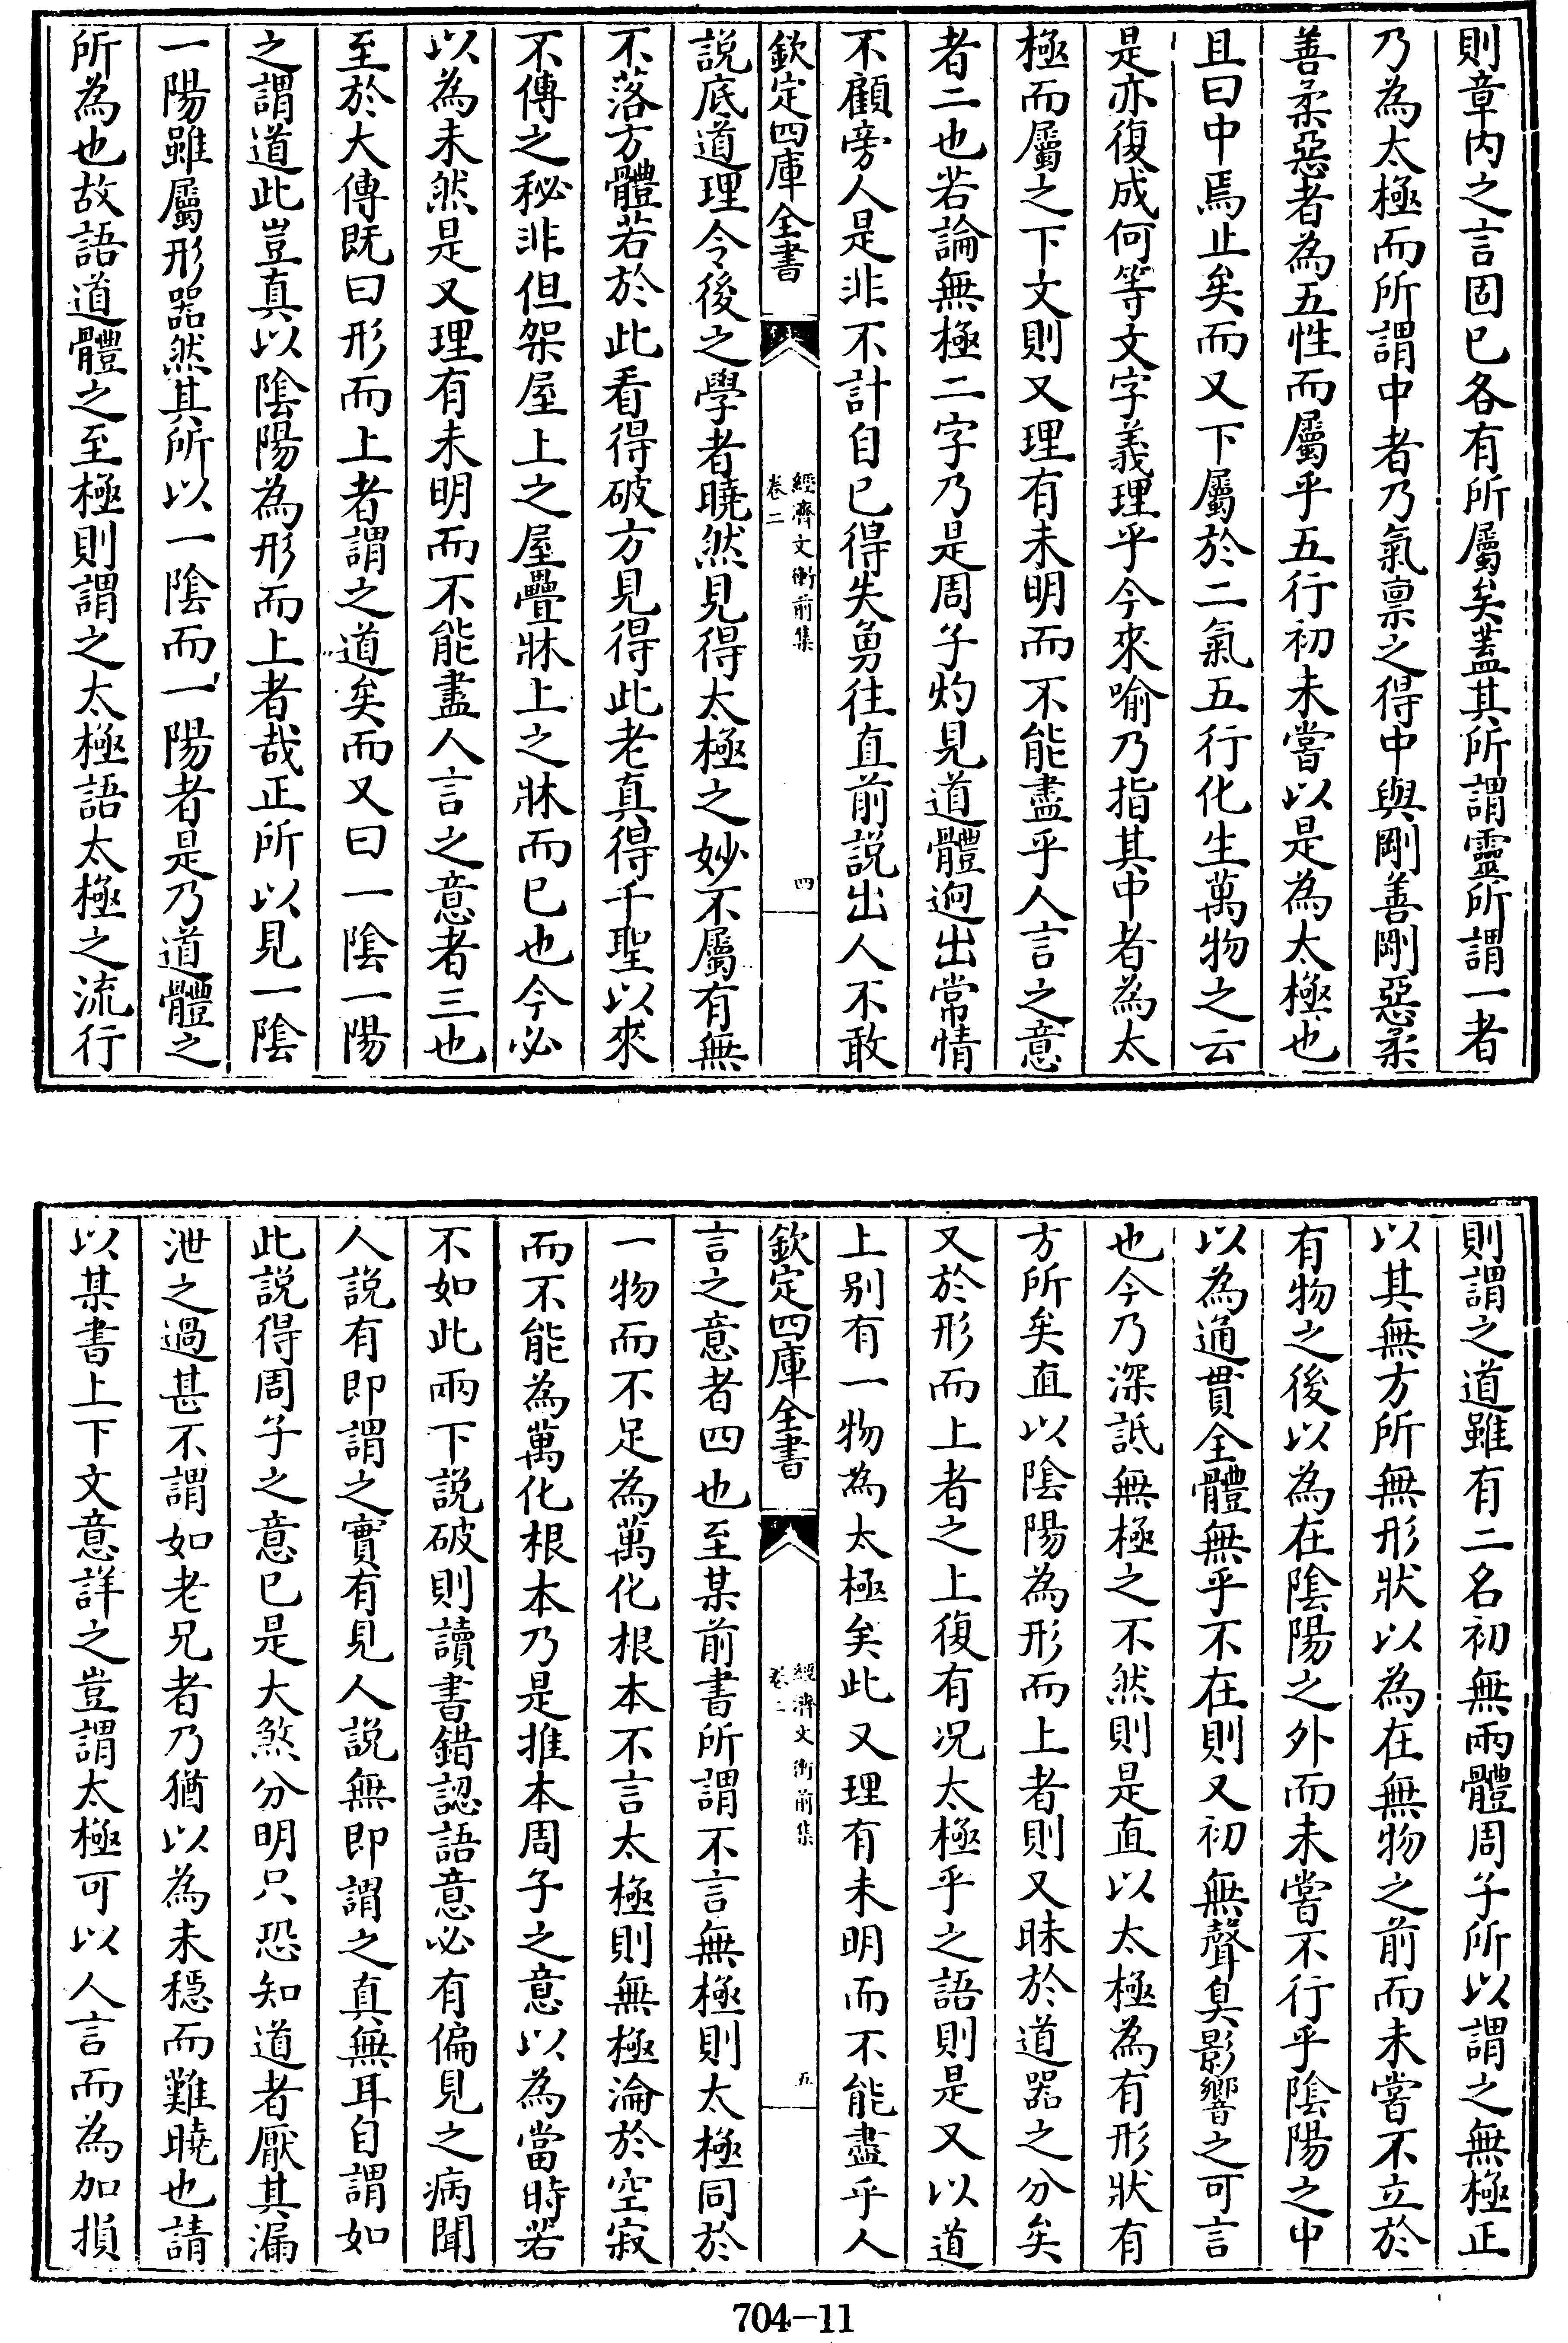 則章内之言固已各有所屬矣蓋其所謂靈所謂一者
乃為太極而所謂中者乃氣禀之得中與剛善剛惡柔
善柔惡者為五性而屬乎五行初未嘗以是為太極也
且曰中焉止矣而又下屬於二氣五行化生萬物之云
是亦復成何等文字義理乎今來喻乃指其中者為太
極而屬之下文則又理有未明而不能盡乎人言之意
者二也若論無極二字乃是周子灼見道體迥出常情
不顧旁人是非不計自已得失勇往直前説出人不敢
欽定四庫全書
經濟文衡前集
卷二
四
說底道理令後之學者曉然見得太極之妙不屬有無
不落方體若於此看得破方見得此老真得千聖以來
不傳之秘非但架屋上之屋疊牀上之牀而已也今必
以為未然是又理有未明而不能盡人言之意者三也
至於大傳既曰形而上者謂之道矣而又曰一陰一陽
之謂道此豈真以陰陽為形而上者哉正所以見一陰
一陽雖屬形器然其所以一陰而一陽者是乃道體之
所為也故語道體之至極則謂之太極語太極之流行
則謂之道雖有二名初無兩體周子所以謂之無極正
以其無方所無形狀以為在無物之前而未嘗不立於
有物之後以為在陰陽之外而未嘗不行乎陰陽之中
以為通貫全體無乎不在則又初無聲臭影響之可言
也今乃深詆無極之不然則是直以太極為有形狀有
方所矣直以陰陽為形而上者則又昧於道器之分矣
又於形而上者之上復有况太極乎之語則是又以道
上别有一物為太極矣此又理有未明而不能盡乎人
欽定四庫全書
經濟文衡前集
卷二
五
言之意者四也至某前書所謂不言無極則太極同於
一物而不足為萬化根本不言太極則無極淪於空寂
而不能為萬化根本乃是推本周子之意以為當時若
不如此兩下説破則讀書錯認語意必有偏見之病聞
人説有即謂之實有見人説無即謂之真無耳自謂如
此説得周子之意已是大煞分明只恐知道者厭其漏
泄之過甚不謂如老兄者乃猶以為未穩而難曉也請
以某書上下文意詳之豈謂太極可以人言而為加損
704-11